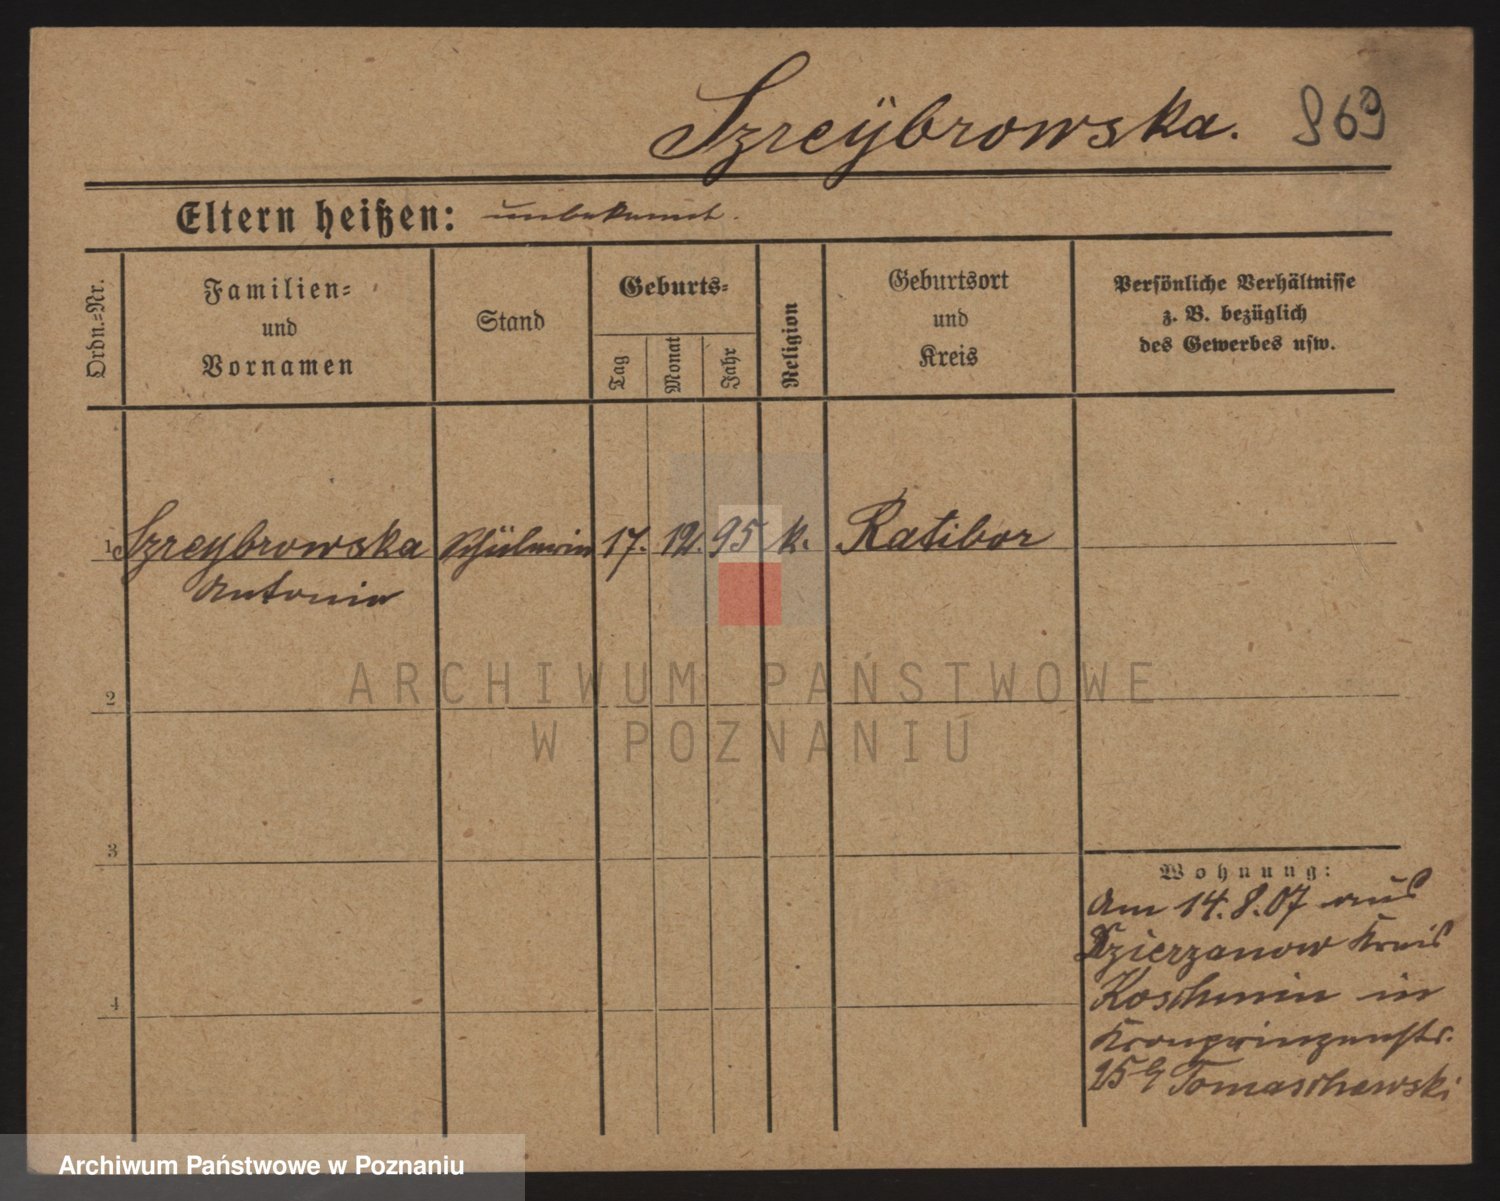 Szreÿbrowska. 869
Eltern heißen: unbekannt.
Ordn.-Nr.
Familien-
und
Vornamen
Stand
Geburts-
Tag
Monat
Jahr
Religion
Geburtsort
und
Kreis
Persönliche Verhältnisse
z. B. bezüglich
des Gewerbes usw.
1 Szreybrowska Schülerin 17. 12. 95 k. Ratibor
Antonie
2
3
4
Wohnung:
Am 14.8.07 aus
Dzierzanow Kreis
Koschmin in
Kronprinzenstr.
25 Tomaschewski
ARCHIWUM PAŃSTWOWE
W POZNANIU
Archiwum Państwowe w Poznaniu